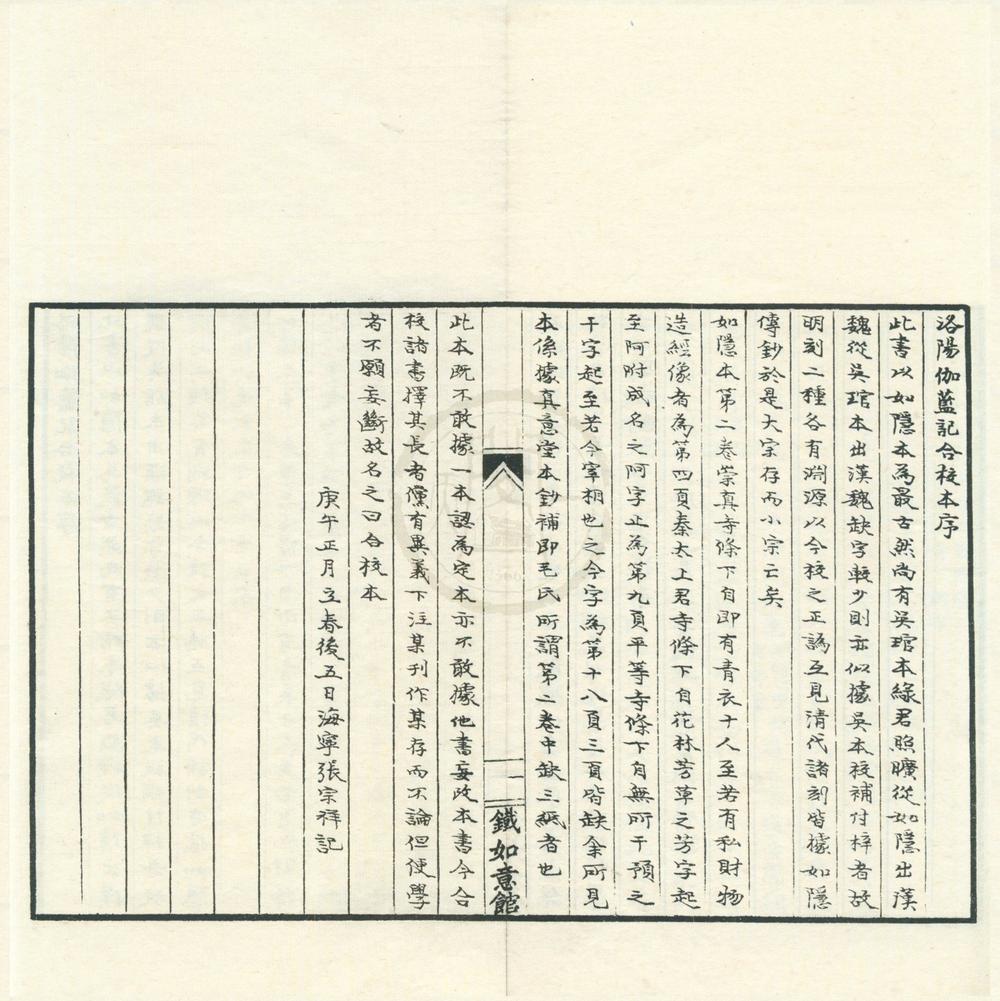 洛陽伽藍記合校本序
此書以如隱本為最古然尚有吳琯本綠君照曠從如隱出漢
魏從吳琯本出漢魏缺字較少則亦似據吳本校補付梓者故
明刻二種各有淵源以今校之正譌互見清代諸刻皆據如隱
傳鈔於是大宗存而小宗亡矣
如隱本第二卷崇真寺條下自即有青衣十人至若有私財物
造經像者為第四頁秦太上君寺條下自花林芳草之芳字起
至阿附成名之阿字止為第九頁平等寺條下自無所干預之
干字起至若今宰相也之今字為第十八頁三頁皆缺余所見
本係據真意堂本鈔補即毛氏所謂第二卷中缺三紙者也
此本既不敢據一本認為定本亦不敢據他書妄改本書今合
校諸書擇其長者儻有異義下注某刊作某存而不論但使學
者不願妄斷故名之曰合校本
庚午正月立春後五日海寧張宗祥記
一
鐵如意館